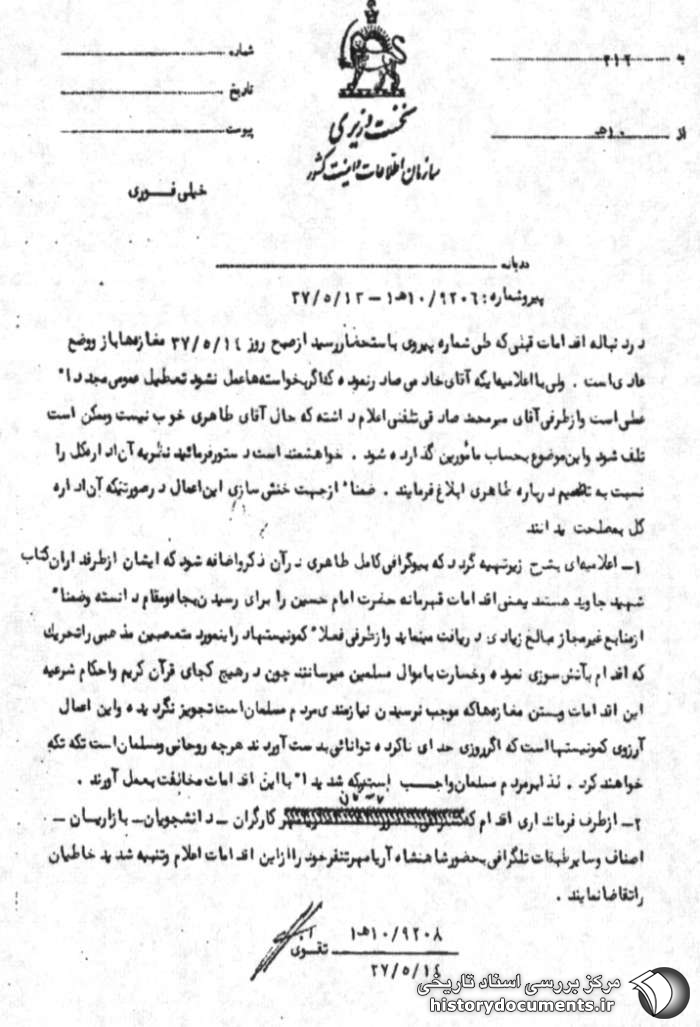 به ۳۱۲
از ۱۰هـ
نخست وزیری
سازمان اطلاعات و امنیت کشور
شماره
تاریخ
پیوست
خیلی فوری
درباره
پیرو شماره: ۹۲۰۶/۱۰هـ۱ - ۳۷/۵/۱۳
در دنباله اقدامات قبلی که طی شماره پیروی باستحضار رسید از صبح روز ۳۷/۵/۱۴ مغازه‌ها باز و وضع
عادی است . ولی با اعلامیه‌ایکه آقای خادمی صادر نموده که اگر بخواسته‌ها عمل نشود تعطیل عمومی مجدداً
عملی است و از طرفی آقای سرمحمد صادقی تلفنی اعلام داشته که حال آقای طاهری خوب نیست و ممکن است
تلف شود و این موضوع بحساب مأمورین گذارده شود . خواهشمند است دستور فرمائید نظریه آن اداره کل را
نسبت به تصمیم درباره طاهری ابلاغ فرمایند . ضمناً از جهت خنثی سازی این اعمال در صورتیکه آن اداره
کل بمصلحت بدانند
۱- اعلامیه‌ای بشرح زیر تهیه گردد که بیوگرافی کامل طاهری در آن ذکر و اضافه شود که ایشان از طرفداران کتاب
شهید جاوید هستند یعنی اقدامات قهرمانه حضرت امام حسین را برای رسیدن بجاه و مقام دانسته و ضمناً
از منابع غیر مجاز مبالغ زیادی دریافت مینماید و از طرفی فعلاً کمونیستها در اینمورد متعصبین مذهبی را تحریک
که اقدام بآتش سوزی نموده و خسارت باموال مسلمین میرسانند چون در هیچ کجای قرآن کریم و احکام شرعیه
این اقدامات و بستن مغازه‌ها که موجب نرسیدن نیازمندی مردم مسلمان است تجویز نگردیده و این اعمال
آرزوی کمونیستها است که اگر روزی خدای ناکرده توانائی بدست آورند هر چه روحانی و مسلمان است تکه تکه
خواهند کرد . لذا بر مردم مسلمان واجب است که شدیداً با این اقدامات مخالفت بعمل آورند .
۲- از طرف فرمانداری اقدام که کارگران - دانشجویان - بازاریان -
اصناف و سایر طبقات تلگرافی بحضور شاهنشاه آریامهر تنفر خود را از این اقدامات اعلام و تنبیه شدید خاطیان
را تقاضا نمایند .
۹۲۰۸/۱۰هـ۱
۳۷/۵/۱۴
تقوی
مرکز بررسی اسناد تاریخی
historydocuments.ir